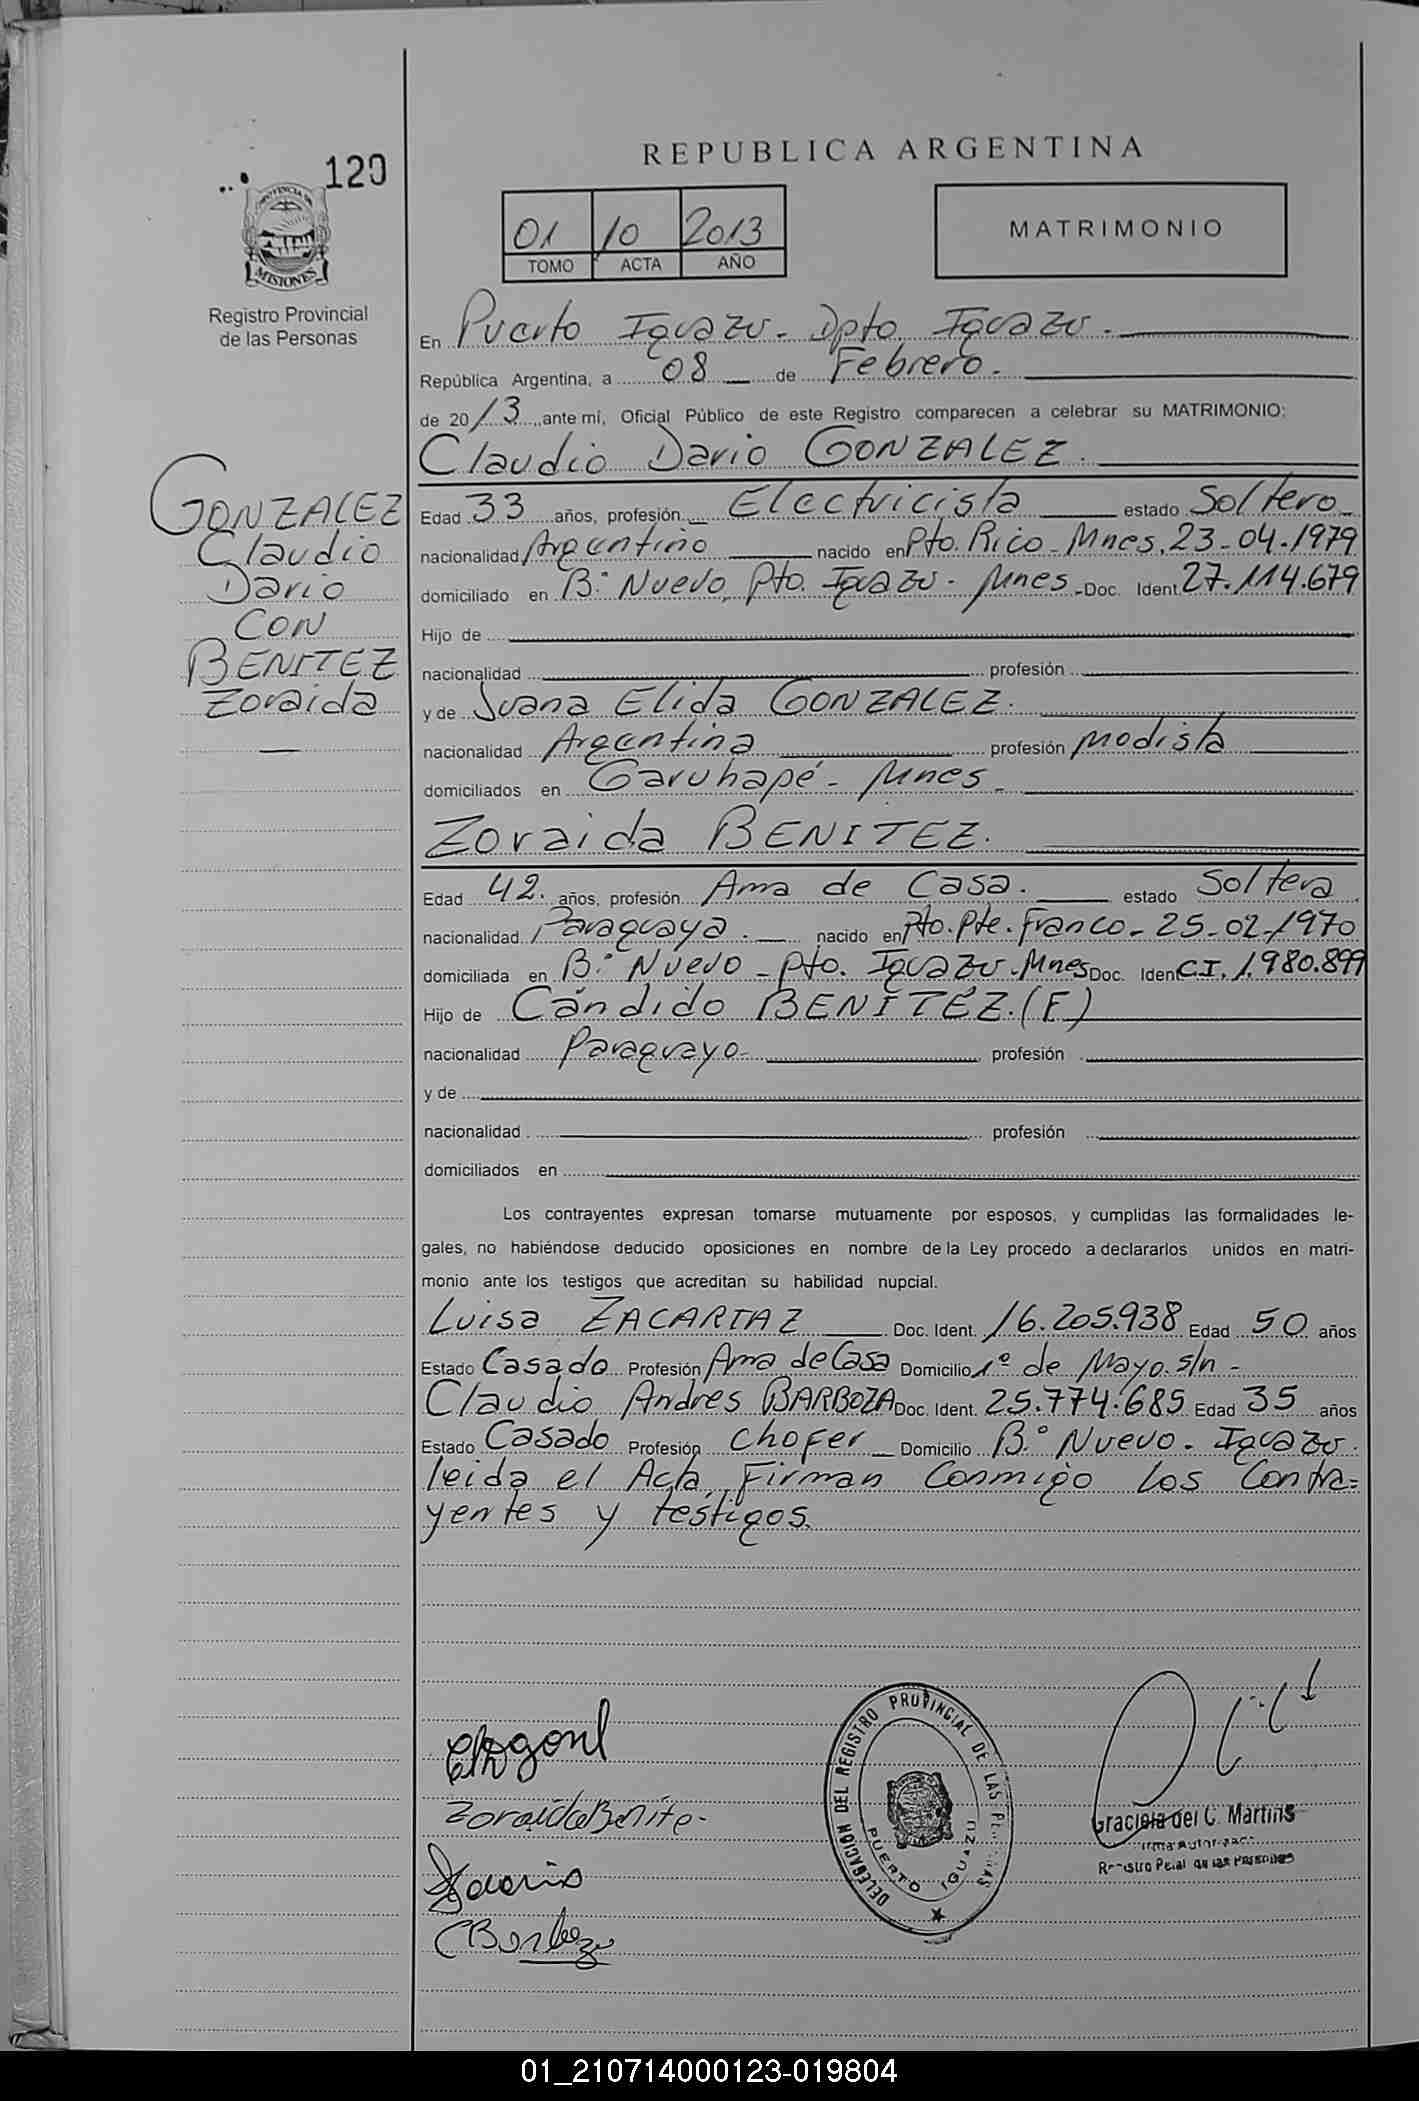 REPUBLICA ARGENTINA
120
PROVINCIA DE
MISIONES
Registro Provincial
de las Personas
01 10 2013
TOMO ACTA AÑO
MATRIMONIO
En Puerto Iguazu - Dpto. Iguazu.
República Argentina, a 08 de Febrero.
de 2013, ante mí, Oficial Público de este Registro comparecen a celebrar su MATRIMONIO:
Claudio Dario GONZALEZ.
GONZALEZ
Claudio
Dario
CON
BENITEZ
Zoraida
Edad 33 años, profesión Electricista estado Soltero
nacionalidad Argentino nacido en Pto. Rico - Mnes, 23-04-1979
domiciliado en B.º Nuevo, Pto. Iguazu - Mnes - Doc. Ident. 27.114.679
Hijo de
nacionalidad profesión
y de Juana Elida GONZALEZ.
nacionalidad Argentina profesión Modista
domiciliados en Garuhapé - Mnes -
Zoraida BENITEZ.
Edad 42. años, profesión Ama de Casa. estado Soltera
nacionalidad Paraguaya. nacido en Pto. Pte. Franco - 25-02-1970
domiciliada en B.º Nuevo - Pto. Iguazu - Mnes Doc. Iden C.I. 1.980.899
Hijo de Cándido BENÍTEZ. (F)
nacionalidad Paraguayo - profesión
y de
nacionalidad profesión
domiciliados en
Los contrayentes expresan tomarse mutuamente por esposos, y cumplidas las formalidades le-
gales, no habiéndose deducido oposiciones en nombre de la Ley procedo a declararlos unidos en matri-
monio ante los testigos que acreditan su habilidad nupcial.
Luisa ZACARIAZ Doc. Ident. 16.205.938 Edad 50 años
Estado Casado Profesión Ama de Casa Domicilio 1º de Mayo s/n -
Claudio Andres BARBOZA Doc. Ident. 25.774.685 Edad 35 años
Estado Casado Profesión Chofer Domicilio B.º Nuevo - Iguazu.
leida el Acta, Firman Conmigo los Contra=
yentes y testigos.
Zoraida Benite-
CBarboza
DELEGACION DEL REGISTRO PROVINCIAL DE LAS PERSONAS
PUERTO IGUAZU
Graciela del C. Martins
Firma Autorizada
Registro Pcial de las Personas
01_210714000123-019804